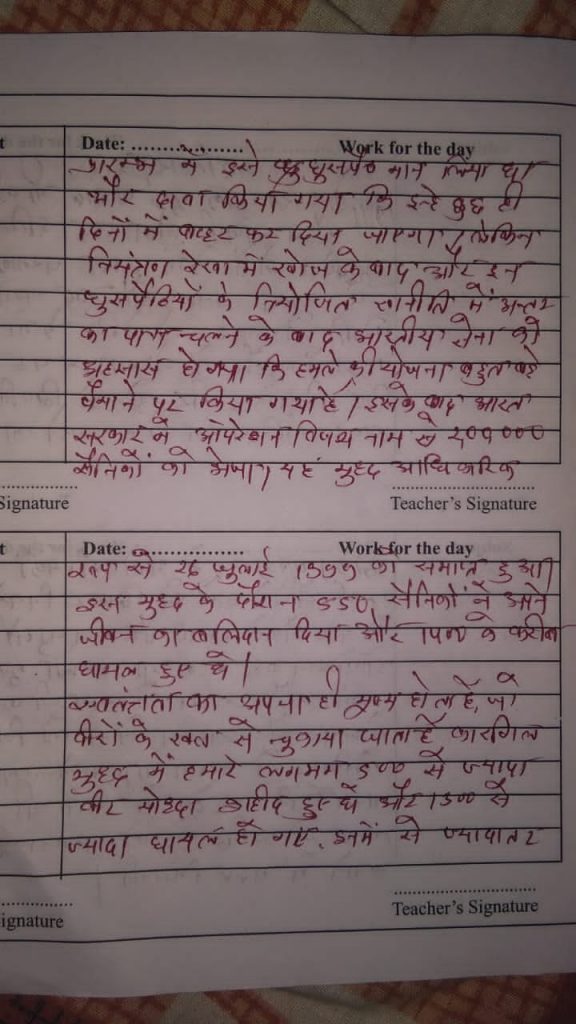 t Date: .................... Work for the day
प्रारम्भ में इसने घुसपैठ मान लिया था
और दावा किया गया कि इन्हे कुछ ही
दिनों में बाहर कर दिया जाएगा, लेकिन
नियंत्रण रेखा में खोज के बाद और इन
घुसपैठियों के नियोजित रणनीति में अन्तर
का पता चलने के बाद भारतीय सेना को
अहसास हो गया कि हमले की योजना बहुत बड़े
पैमाने पर किया गया है। इसके बाद भारत
सरकार ने ओपरेशन विजय नाम से 200000
सैनिकों को भेजा, यह युद्ध आधिकारिक
Signature Teacher's Signature
t Date: .................... Work for the day
रूप से 26 जुलाई 1999 को समाप्त हुआ।
इस युद्ध के दौरान 550 सैनिकों ने अपने
जीवन का बलिदान दिया और 1400 के करीब
घायल हुए थे।
स्वतंत्रता का अपना ही मूल्य होता है, जो
वीरों के रक्त से चुकाया जाता है कारगिल
युद्ध में हमारे लगभग 500 से ज्यादा
वीर योद्धा शहीद हुए थे और 1300 से
ज्यादा घायल हो गए, इनमें से ज्यादातर
ignature Teacher's Signature